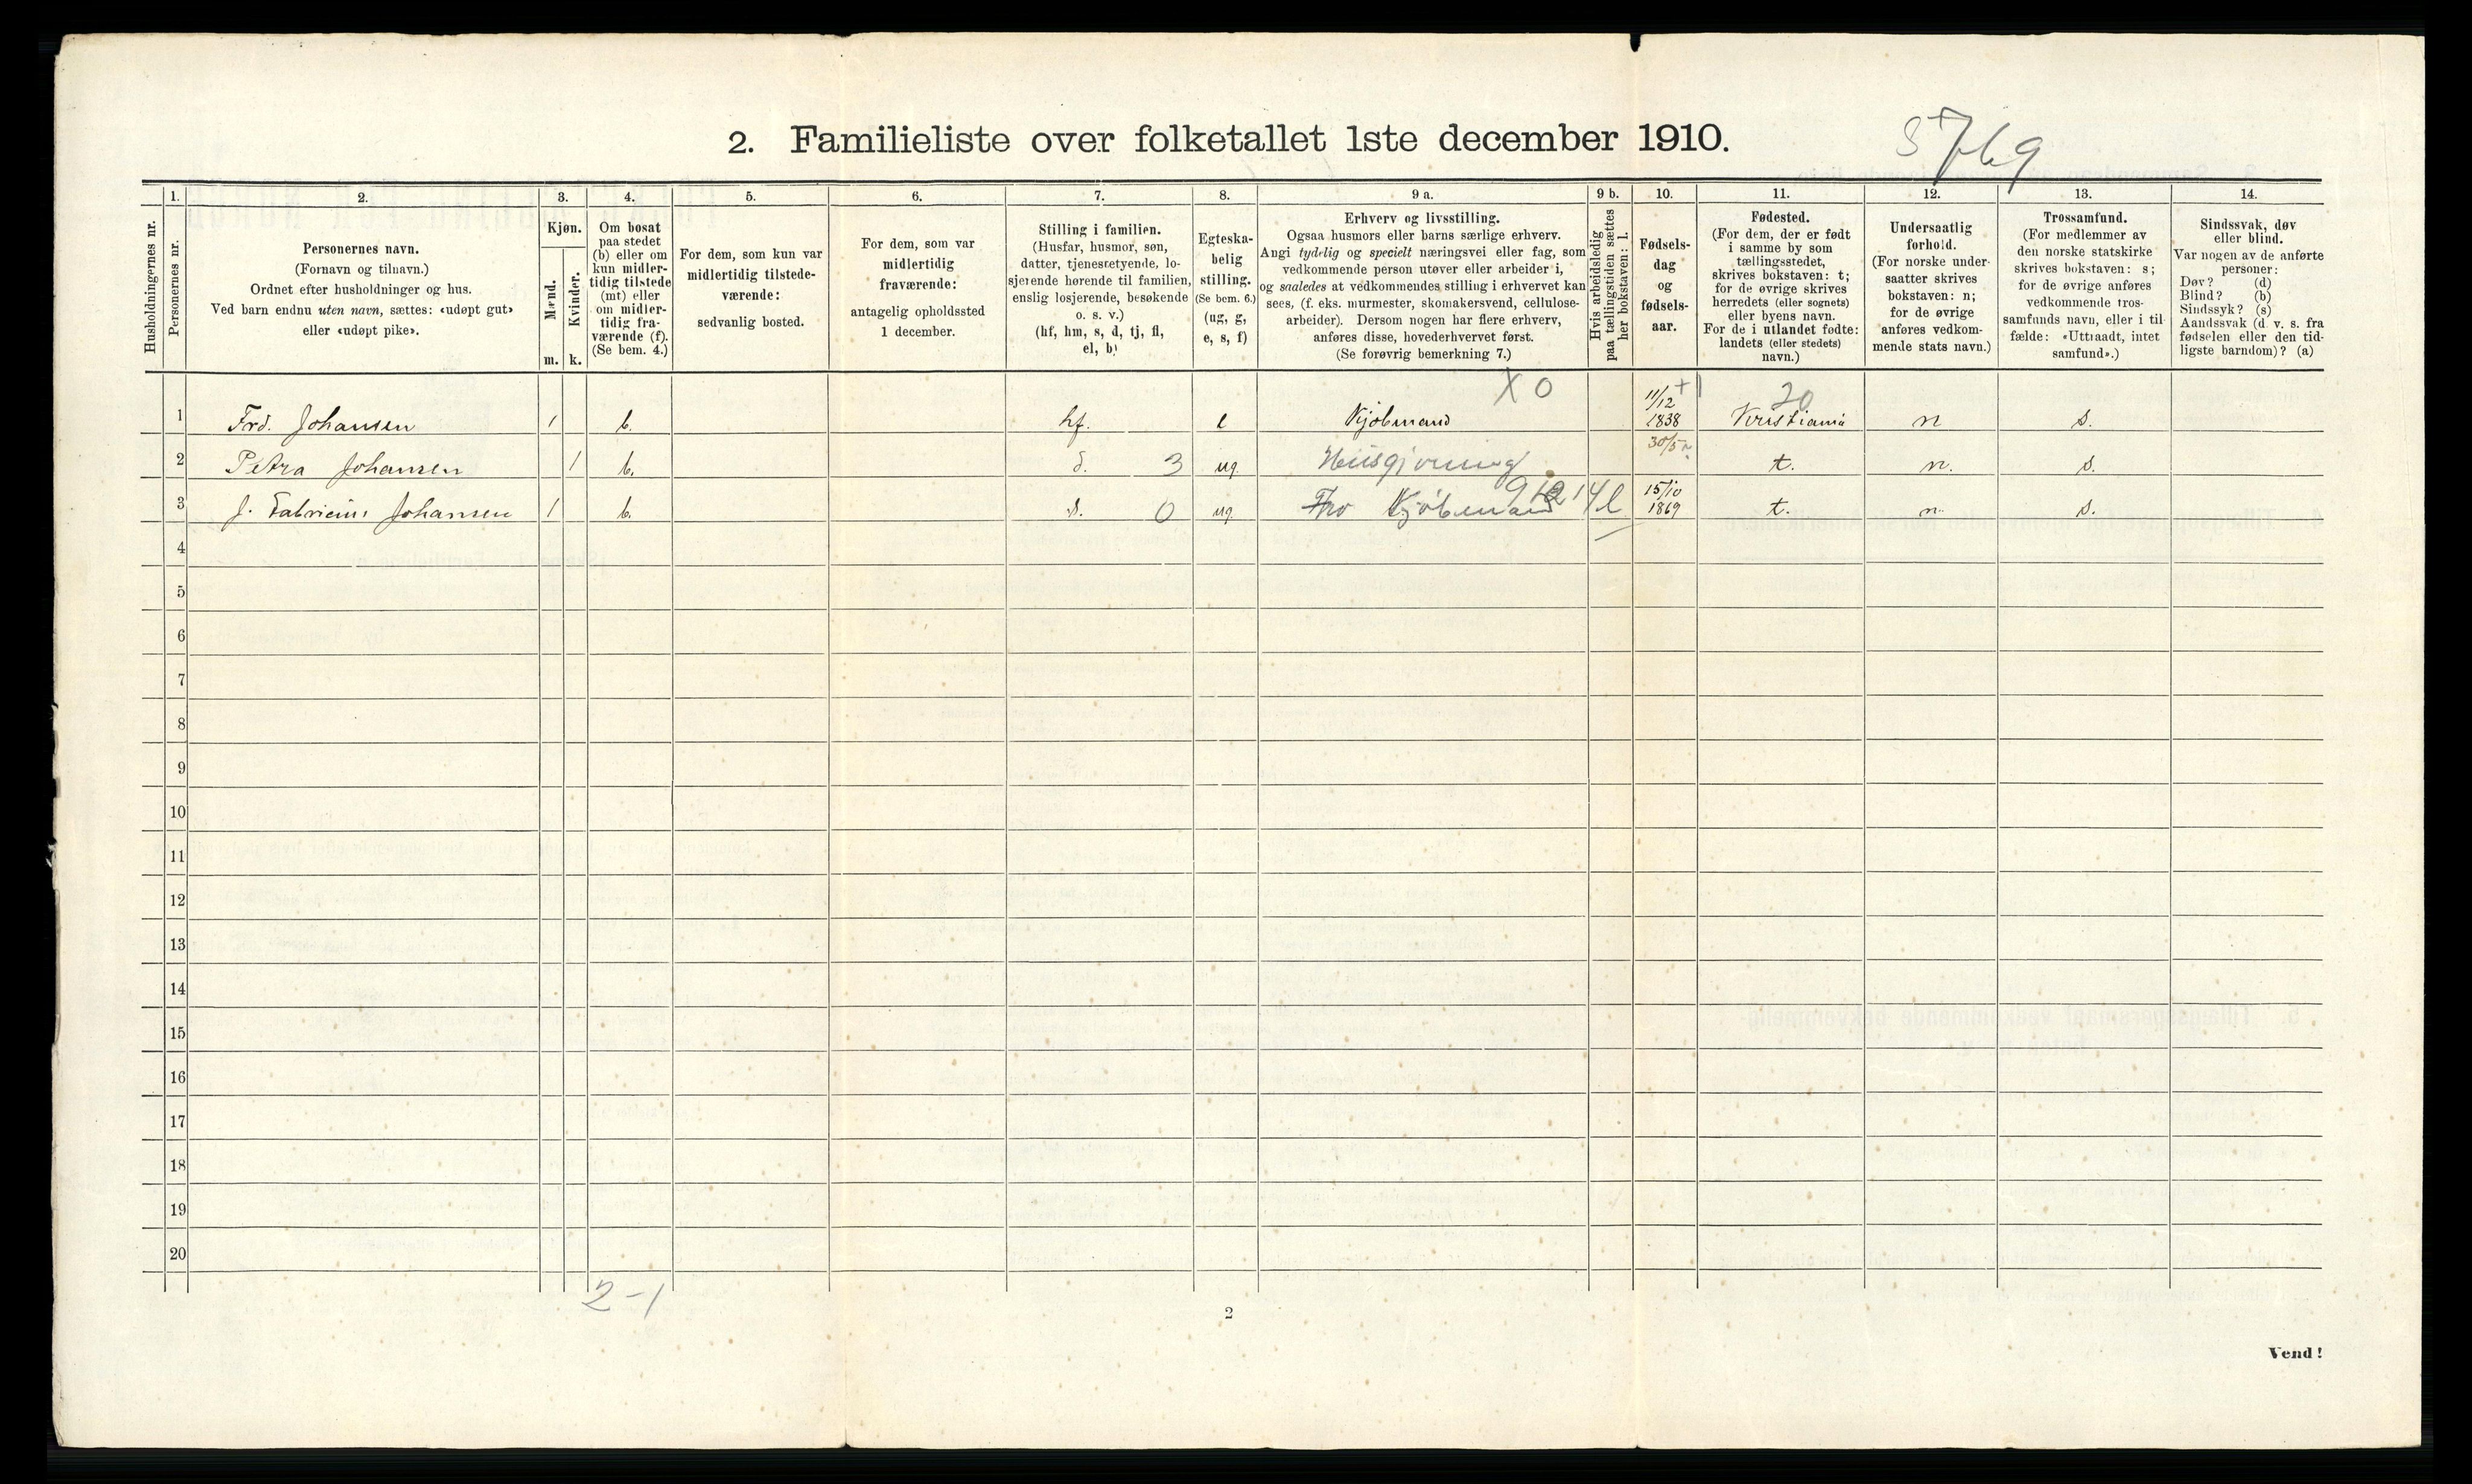 2. Familieliste over folketallet 1ste december 1910.
5769
Husholdningernes nr.
1.
Personernes nr.
2.
Personernes navn.
(Fornavn og tilnavn.)
Ordnet efter husholdninger og hus.
Ved barn endnu uten navn, sættes: «udøpt gut»
eller «udøpt pike».
3.
Kjøn.
Mænd.
m.
Kvinder.
k.
4.
Om bosat
paa stedet
(b) eller om
kun midler-
tidig tilstede
(mt) eller
om midler-
tidig fra-
værende (f).
(Se bem. 4.)
5.
For dem, som kun var
midlertidig tilstede-
værende:
sedvanlig bosted.
6.
For dem, som var
midlertidig
fraværende:
antagelig opholdssted
1 december.
7.
Stilling i familien.
(Husfar, husmor, søn,
datter, tjenestetyende, lo-
sjerende hørende til familien,
enslig losjerende, besøkende
o. s. v.)
(hf, hm, s, d, tj, fl,
el, b)
8.
Egteska-
belig
stilling.
(Se bem. 6.)
(ug, g,
e, s, f)
9 a.
Erhverv og livsstilling.
Ogsaa husmors eller barns særlige erhverv.
Angi tydelig og specielt næringsvei eller fag, som
vedkommende person utøver eller arbeider i,
og saaledes at vedkommendes stilling i erhvervet kan
sees, (f. eks. murmester, skomakersvend, cellulose-
arbeider). Dersom nogen har flere erhverv,
anføres disse, hovederhvervet først.
(Se forøvrig bemerkning 7.)
9 b.
Hvis arbeidsledig
paa tællingstiden sættes
her bokstaven: l.
10.
Fødsels-
dag
og
fødsels-
aar.
11.
Fødested.
(For dem, der er født
i samme by som
tællingsstedet,
skrives bokstaven: t;
for de øvrige skrives
herredets (eller sognets)
eller byens navn.
For de i utlandet fødte:
landets (eller stedets)
navn.)
12.
Undersaatlig
forhold.
(For norske under-
saatter skrives
bokstaven: n;
for de øvrige
anføres vedkom-
mende stats navn.)
13.
Trossamfund.
(For medlemmer av
den norske statskirke
skrives bokstaven: s;
for de øvrige anføres
vedkommende tros-
samfunds navn, eller i til-
fælde: «Uttraadt, intet
samfund».)
14.
Sindssvak, døv
eller blind.
Var nogen av de anførte
personer:
Døv? (d)
Blind? (b)
Sindssyk? (s)
Aandssvak (d. v. s. fra
fødselen eller den tid-
ligste barndom)? (a)
X 0 11/12 20
1 Frd. Johansen 1 b. hf. e Kjøbmand 1838 Kristiania n s.
30/5
2 Petra Johansen 1 b. d. 3 ug. Husgjerning t. n. s.
15/10
3 J. Fabricius Johansen 1 b. s. 0 ug. Kjøbmand l 1869 t. n. s.
4
5
6
7
8
9
10
11
12
13
14
15
16
17
18
19
20
2-1
2
Vend!